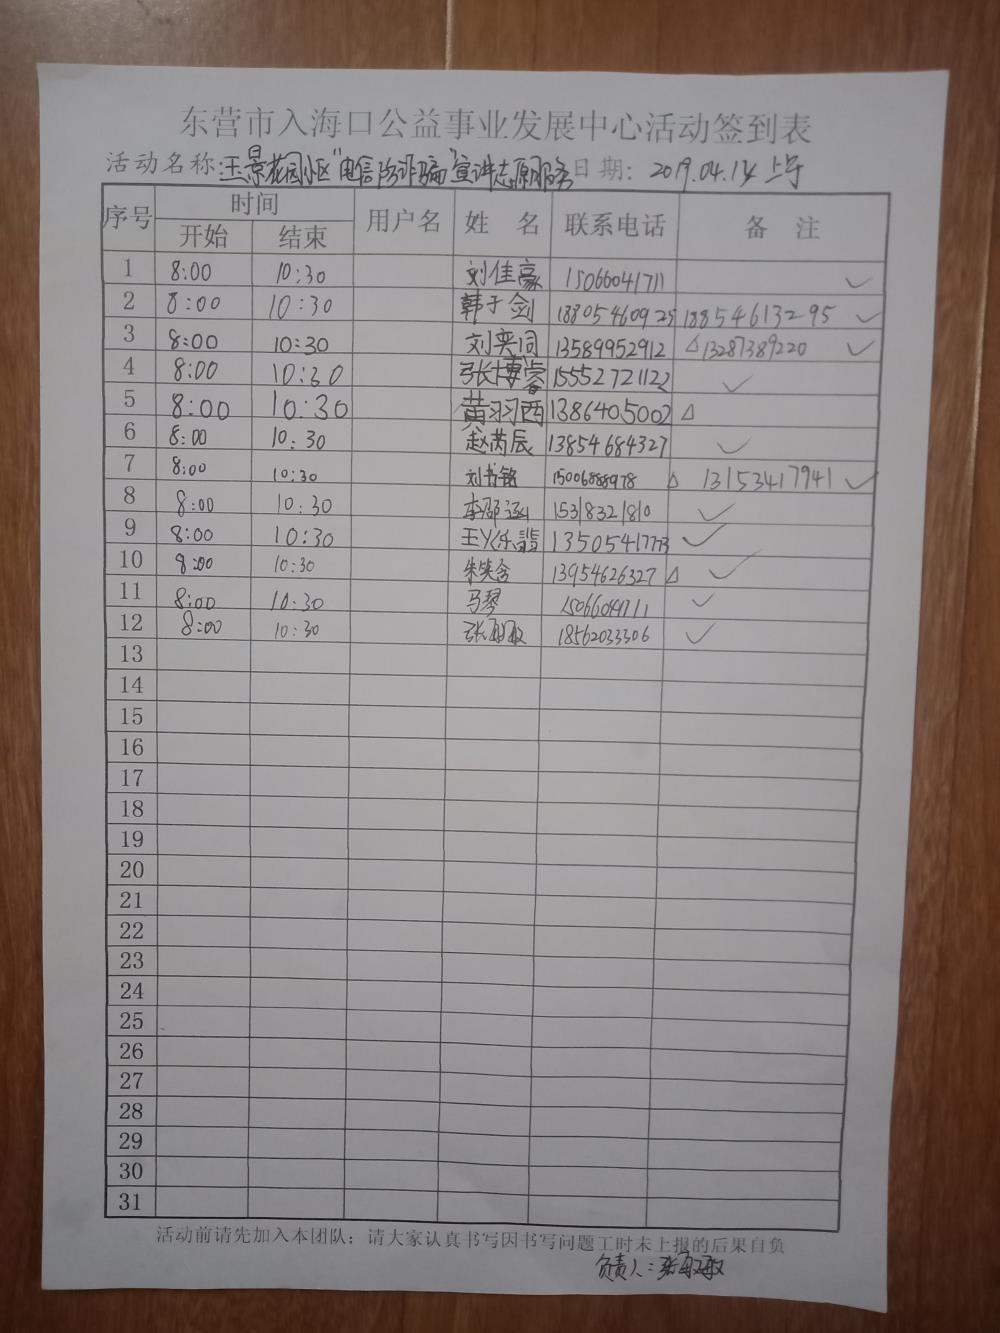 东营市入海口公益事业发展中心活动签到表
活动名称:玉景花园小区"电信防诈骗"宣讲志愿服务 日期: 2019.04.14 上午
序号 时间 用户名 姓 名 联系电话 备 注
开始 结束
1 8:00 10:30 刘佳豪 15066041711 ✓
2 8:00 10:30 韩于剑 18805460925 18854613295 ✓
3 8:00 10:30 刘奕同 13589952912 △13287389220 ✓
4 8:00 10:30 张博睿 15552721122 ✓
5 8:00 10:30 黄羽西 1386405002 △
6 8:00 10:30 赵芮辰 13854684327 ✓
7 8:00 10:30 刘书铭 15006888978 △ 13153417941 ✓
8 8:00 10:30 李邵涵 15318321810 ✓
9 8:00 10:30 王 13505417773 ✓
10 8:00 10:30 朱笑含 13954626327 △ ✓
11 8:00 10:30 马琴 15066041711 ✓
12 8:00 10:30 张 18562033306 ✓
13
14
15
16
17
18
19
20
21
22
23
24
25
26
27
28
29
30
31
活动前请先加入本团队；请大家认真书写因书写问题工时未上报的后果自负
负责人:张